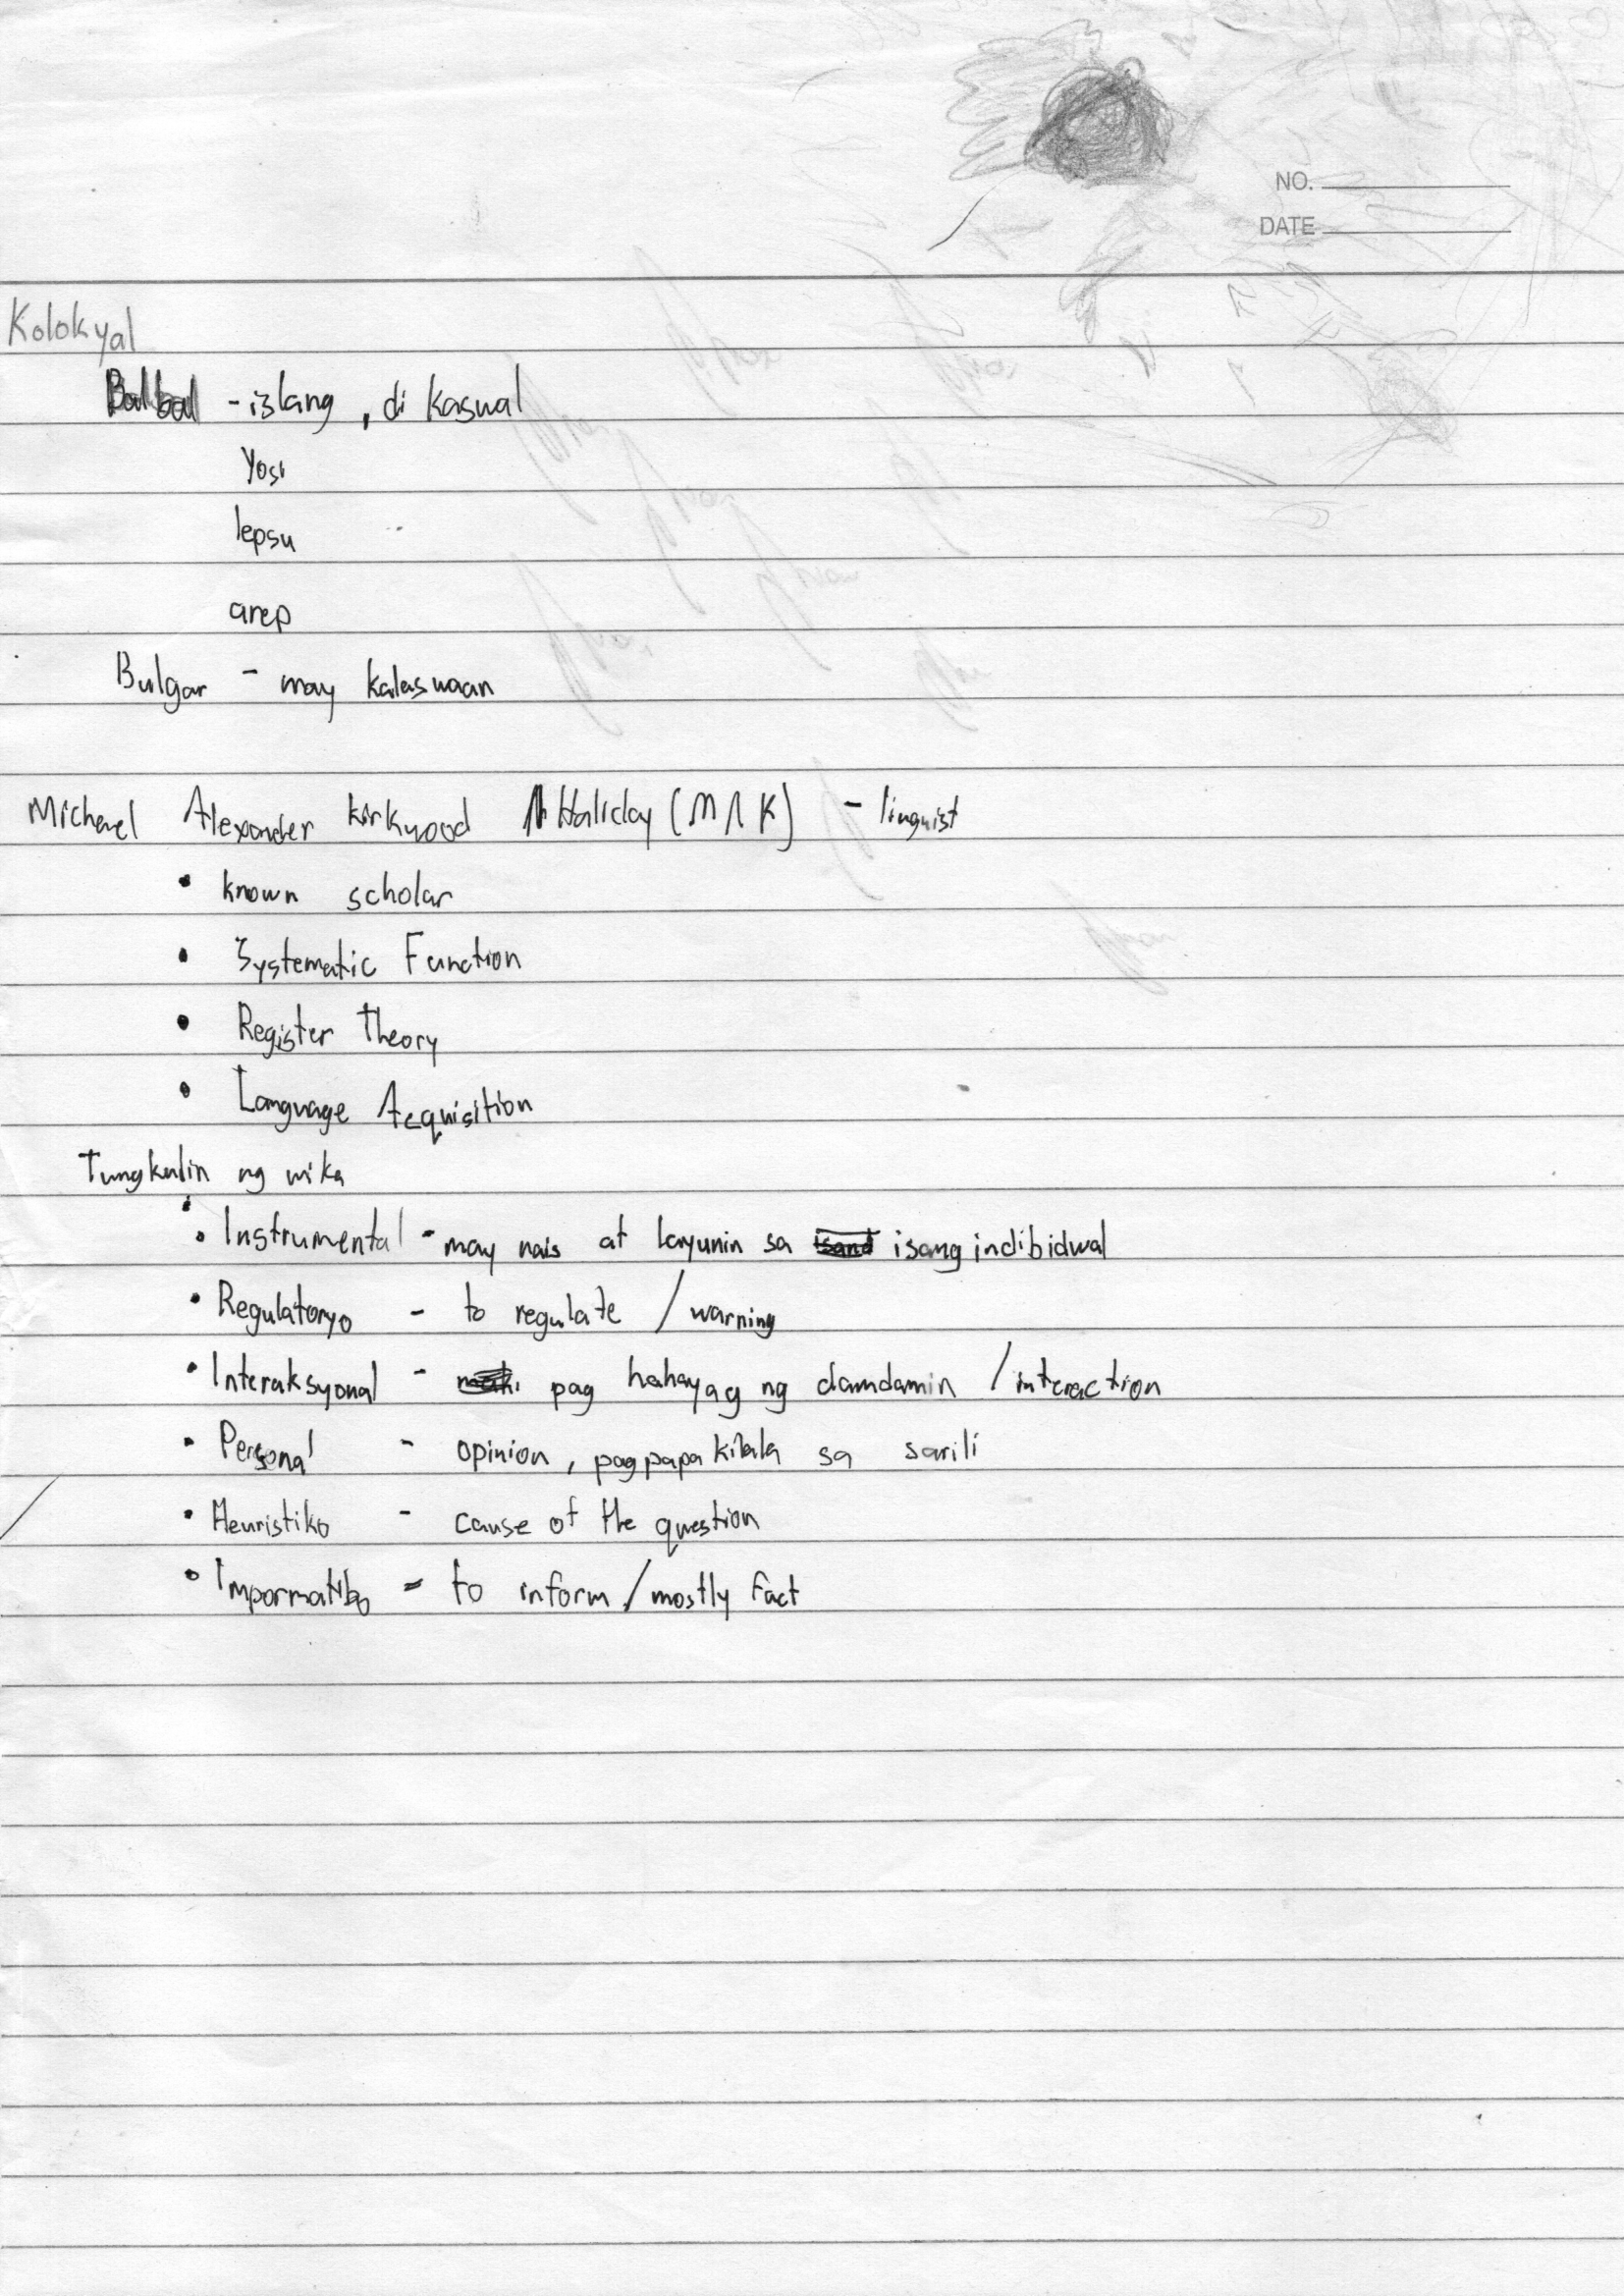 NO.
DATE
Kolokyal
Balbal - islang, di kasual
Yosi
lepsu
arep
Bulgar - may kalaswaan
Michael Alexander Kirkwood Haliday (MAK) - linguist
• known scholar
• Systematic Function
• Register Theory
• Language Acquisition
Tungkulin ng wika
• Instrumental - may nais at layunin sa isang indibidwal
• Regulatoryo - to regulate / warning
• Interaksyonal - pag hahayag ng damdamin / interaction
• Personal - opinion, pagpapakilala sa sarili
• Heuristiko - cause of the question
• Impormatibo - to inform / mostly fact